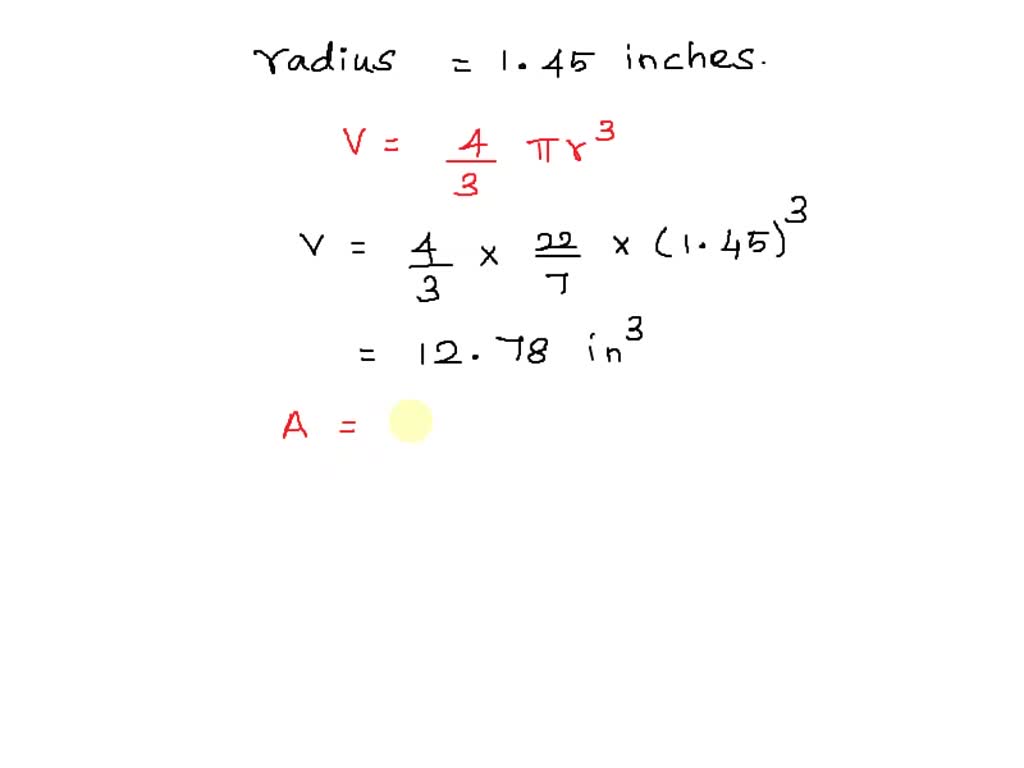 radius = 1.45 inches.
V = 4/3 πr³
V = 4/3 × 22/7 × (1.45)³
= 12.78 in³
A =